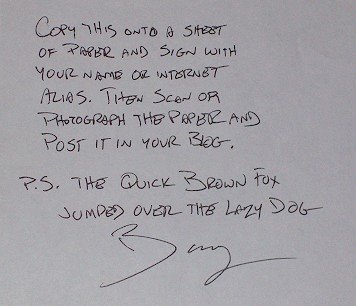 COPY THIS ONTO A SHEET
OF PAPER AND SIGN WITH
YOUR NAME OR INTERNET
ALIAS. THEN SCAN OR
PHOTOGRAPH THE PAPER AND
POST IT IN YOUR BLOG.
P.S. THE QUICK BROWN FOX
JUMPED OVER THE LAZY DOG